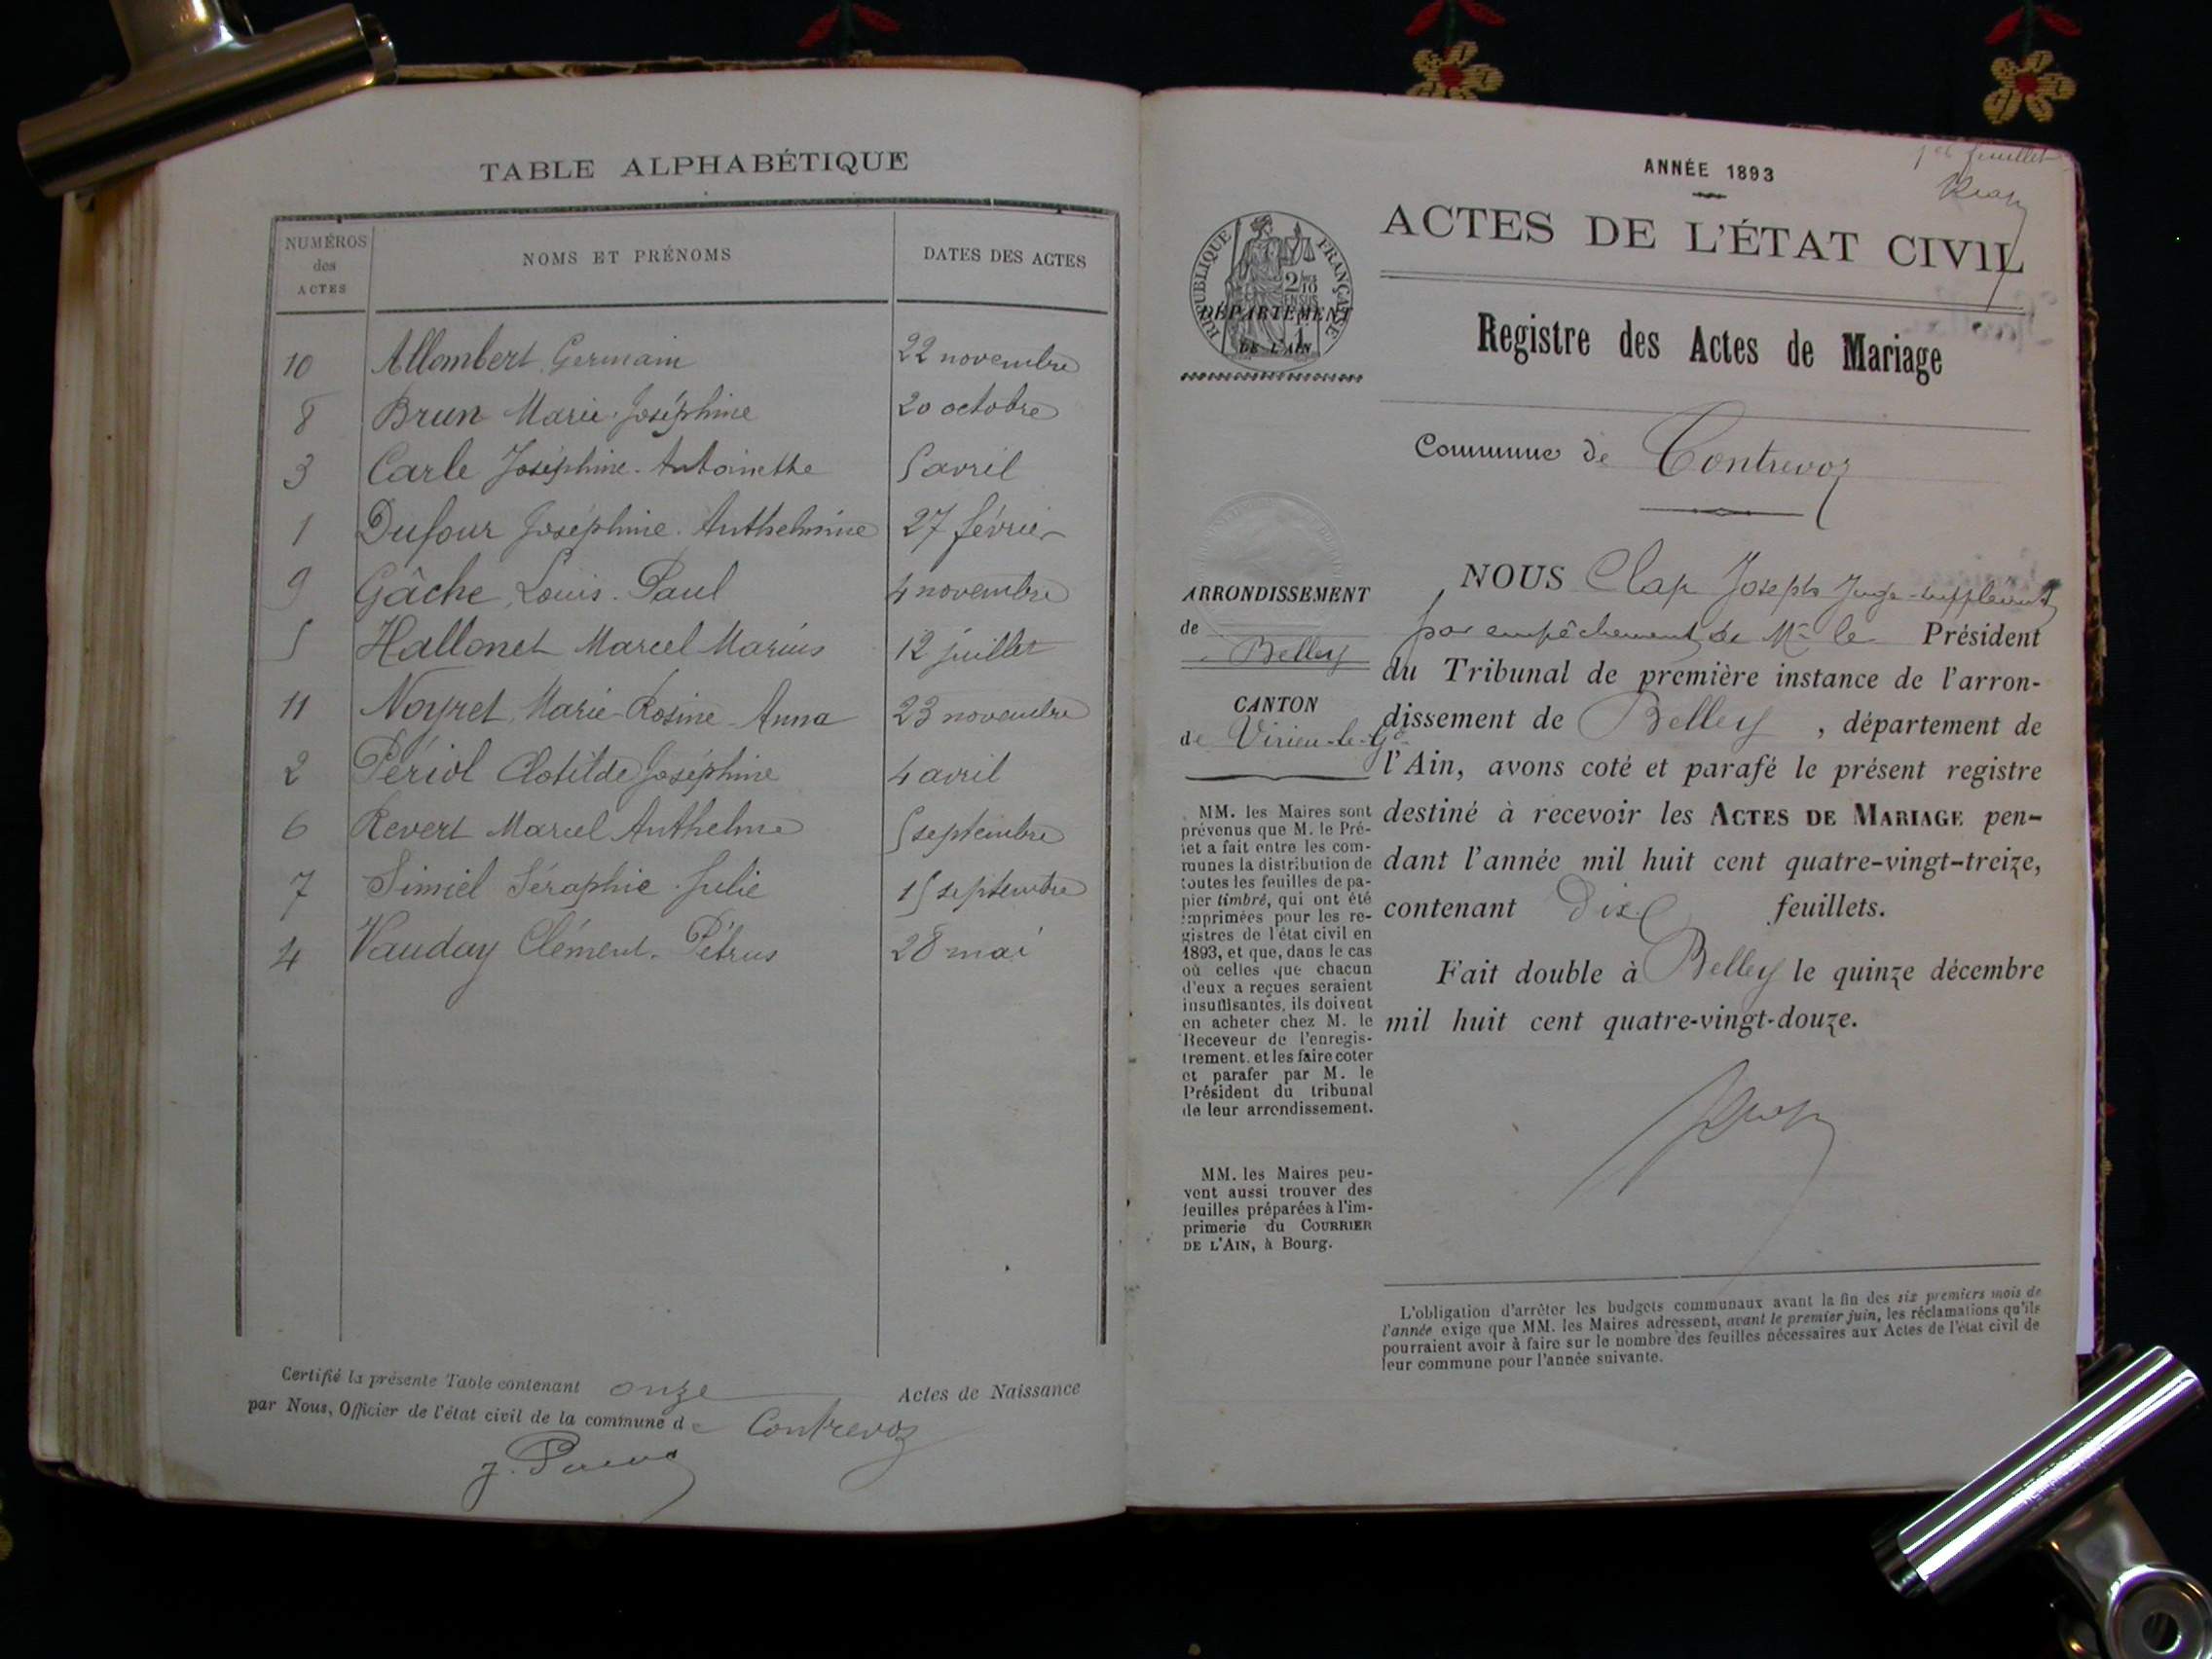 TABLE ALPHABÉTIQUE
NUMÉROS des ACTES NOMS ET PRÉNOMS DATES DES ACTES
10 Allombert Germain 22 novembre
8 Brun Marie Joséphine 20 octobre
3 Carle Joséphine-Antoinette 5 avril
1 Dufour Joséphine-Anthelmine 27 février
9 Gâche Louis-Paul 4 novembre
5 Hallonet Marcel Marius 12 juillet
11 Noyret Marie-Rosine-Anna 23 novembre
2 Périol Clotilde Joséphine 4 avril
6 Revert Marcel Anthelme 5 septembre
7 Simiel Séraphie Julie 15 septembre
4 Vauday Clément-Pétrus 28 mai
Certifié la présente Table contenant onze Actes de Naissance
par Nous, Officier de l'état civil de la commune de Contrevoz
1er feuillet
ANNÉE 1893
ACTES DE L'ÉTAT CIVIL
RÉPUBLIQUE FRANÇAISE
DÉPARTEMENT
DE L'AIN
Registre des Actes de Mariage
Commune de Contrevoz
ARRONDISSEMENT
de
Belley
CANTON
de Virieu-le-Gd
MM. les Maires sont
prévenus que M. le Pré-
fet a fait entre les com-
munes la distribution de
toutes les feuilles de pa-
pier timbré, qui ont été
imprimées pour les re-
gistres de l'état civil en
1893, et que, dans le cas
où celles que chacun
d'eux a reçues seraient
insuffisantes, ils doivent
en acheter chez M. le
Receveur de l'enregis-
trement. et les faire coter
et parafer par M. le
Président du tribunal
de leur arrondissement.
MM. les Maires peu-
vent aussi trouver des
feuilles préparées à l'im-
primerie du COURRIER
DE L'AIN, à Bourg.
NOUS Clap Joseph Juge-suppléant
par empêchement de Mr le Président
du Tribunal de première instance de l'arron-
dissement de Belley, département de
l'Ain, avons coté et parafé le présent registre
destiné à recevoir les ACTES DE MARIAGE pen-
dant l'année mil huit cent quatre-vingt-treize,
contenant dix feuillets.
Fait double à Belley le quinze décembre
mil huit cent quatre-vingt-douze.
L'obligation d'arrêter les budgets communaux avant la fin des six premiers mois de
l'année exige que MM. les Maires adressent, avant le premier juin, les réclamations qu'ils
pourraient avoir à faire sur le nombre des feuilles nécessaires aux Actes de l'état civil de
leur commune pour l'année suivante.